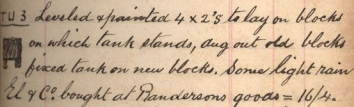 TU 3 Leveled & painted 4 x 2's to lay on blocks
on which tank stands, dug out old blocks
fixed tank on new blocks. Some light rain
El & Co. bought at Pandersons goods = 16/4.